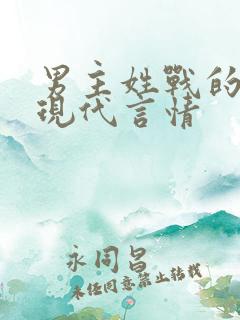 男主姓戰的
現代言情
永同昌
未经同意禁止转载